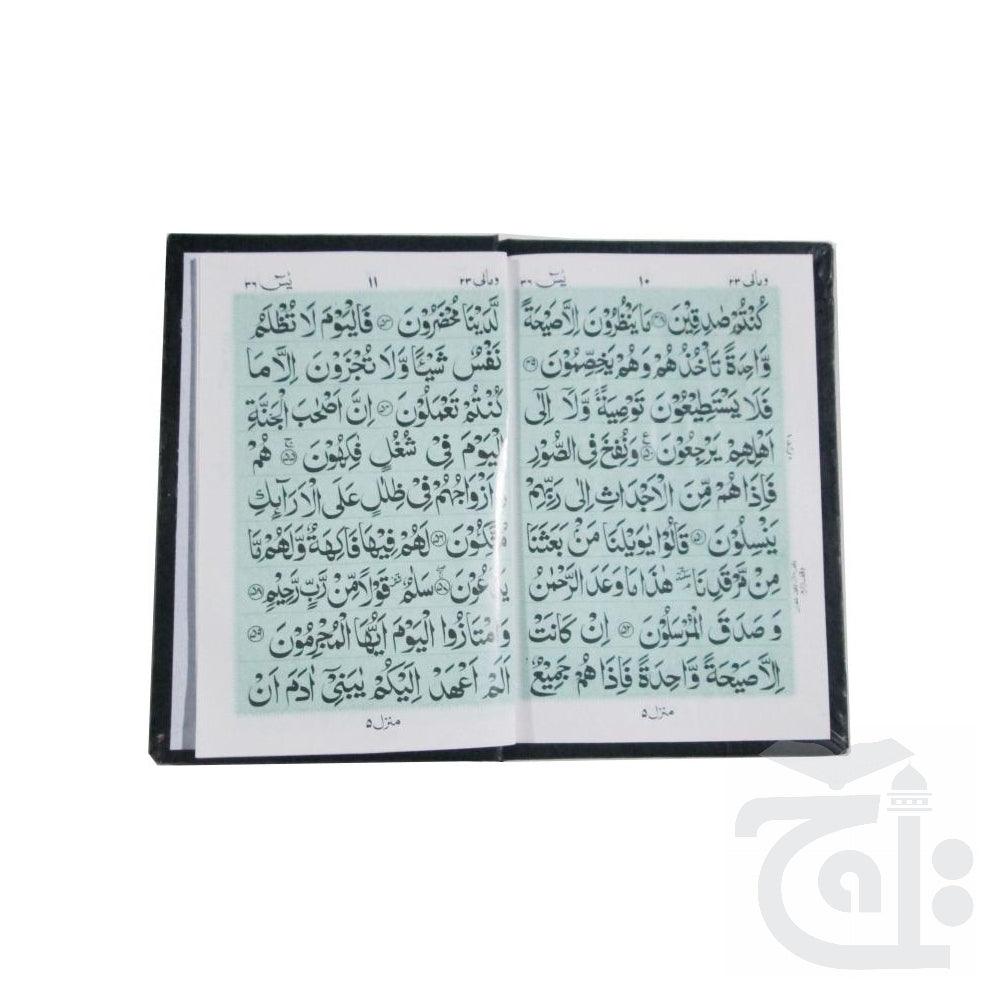 ومالی ۲۳
۱۰
یٰسٓ ۳۶
كُنْتُمْ صٰدِقِيْنَ ۴۸ مَا يَنْظُرُوْنَ اِلَّا صَيْحَةً
وَّاحِدَةً تَاْخُذُهُمْ وَهُمْ يَخِصِّمُوْنَ ۴۹
فَلَا يَسْتَطِيْعُوْنَ تَوْصِيَةً وَّلَاۤ اِلٰۤى
اَهْلِهِمْ يَرْجِعُوْنَ ۵۰ وَنُفِخَ فِى الصُّوْرِ
فَاِذَا هُمْ مِّنَ الْاَجْدَاثِ اِلٰى رَبِّهِمْ
يَنْسِلُوْنَ ۵۱ قَالُوْا يٰوَيْلَنَا مَنْۢ بَعَثَنَا
مِنْ مَّرْقَدِنَا هٰذَا مَا وَعَدَ الرَّحْمٰنُ
وَصَدَقَ الْمُرْسَلُوْنَ ۵۲ اِنْ كَانَتْ
اِلَّا صَيْحَةً وَّاحِدَةً فَاِذَا هُمْ جَمِيْعٌ
منزل ۵
ومالی ۲۳
۱۱
یٰسٓ ۳۶
لَّدَيْنَا مُحْضَرُوْنَ ۵۳ فَالْيَوْمَ لَا تُظْلَمُ
نَفْسٌ شَيْـًٔا وَّلَا تُجْزَوْنَ اِلَّا مَا
كُنْتُمْ تَعْمَلُوْنَ ۵۴ اِنَّ اَصْحٰبَ الْجَنَّةِ
الْيَوْمَ فِىْ شُغُلٍ فٰكِهُوْنَ ۵۵ هُمْ
وَاَزْوَاجُهُمْ فِىْ ظِلٰلٍ عَلَى الْاَرَآئِكِ
مُتَّكِـُٔوْنَ ۵۶ لَهُمْ فِيْهَا فَاكِهَةٌ وَّلَهُمْ مَّا
يَدَّعُوْنَ ۵۷ سَلٰمٌ قَوْلًا مِّنْ رَّبٍّ رَّحِيْمٍ ۵۸
وَامْتَازُوا الْيَوْمَ اَيُّهَا الْمُجْرِمُوْنَ ۵۹
اَلَمْ اَعْهَدْ اِلَيْكُمْ يٰبَنِىْۤ اٰدَمَ اَنْ
منزل ۵